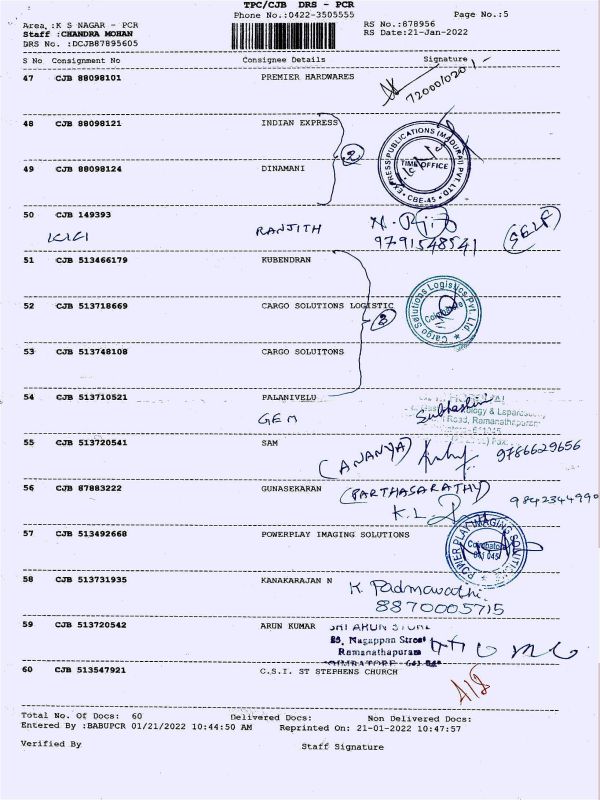 TPC/CJB DRS - PCR
Phone No.:0422-3505555 Page No.:5
Area :K S NAGAR - PCR RS No.:878956
Staff :CHANDRA MOHAN RS Date:21-Jan-2022
DRS No. :DCJB87895605
S No Consignment No Consignee Details Signature
47 CJB 88098101 PREMIER HARDWARES
48 CJB 88098121 INDIAN EXPRESS
EXPRESS PUBLICATIONS (MADURAI) PVT LTD
TIME OFFICE
CBE-45
2
49 CJB 88098124 DINAMANI
50 CJB 149393 RANJITH
9791548541 (SELF)
51 CJB 513466179 KUBENDRAN
52 CJB 513718669 CARGO SOLUTIONS LOGISTIC
3
Cargo Solutions Logistics Pvt. Ltd
Coimbatore
53 CJB 513748108 CARGO SOLUITONS
54 CJB 513710521 PALANIVELU
GEM
Road, Ramanathapuram
55 CJB 513720541 SAM
(ANANYA) 9786629656
56 CJB 87883222 GUNASEKARAN (PARTHASARATHY)
K.L.
57 CJB 513492668 POWERPLAY IMAGING SOLUTIONS
POWER PLAY IMAGING SOLUTIONS
Coimbatore
641 045
58 CJB 513731935 KANAKARAJAN N
K. Padmavathi
8870005715
59 CJB 513720542 ARUN KUMAR SRI ARUN STORE
Nagappan Street
Ramanathapuram
COIMBATORE - 641 045
60 CJB 513547921 C.S.I. ST STEPHENS CHURCH
Total No. Of Docs: 60 Delivered Docs: Non Delivered Docs:
Entered By :BABUPCR 01/21/2022 10:44:50 AM Reprinted On: 21-01-2022 10:47:57
Verified By Staff Signature